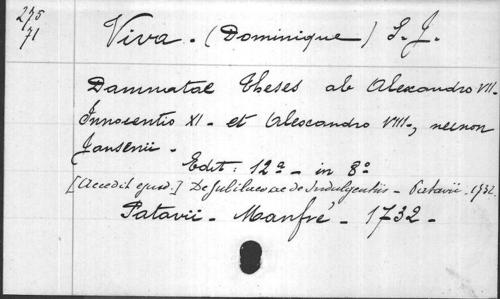 275
71
Viva. (Dominique) S. J.
Damnatae Theses ab Alexandro VII-
Innocentio XI - et Alexandro VIII-, necnon
Jansenii -
Edit: 12a - in 8o
[Accedit ejusd.] De Jubilaeo ac de Indulgentiis - Patavii - 1732.
Patavii - Manfré - 1732 -